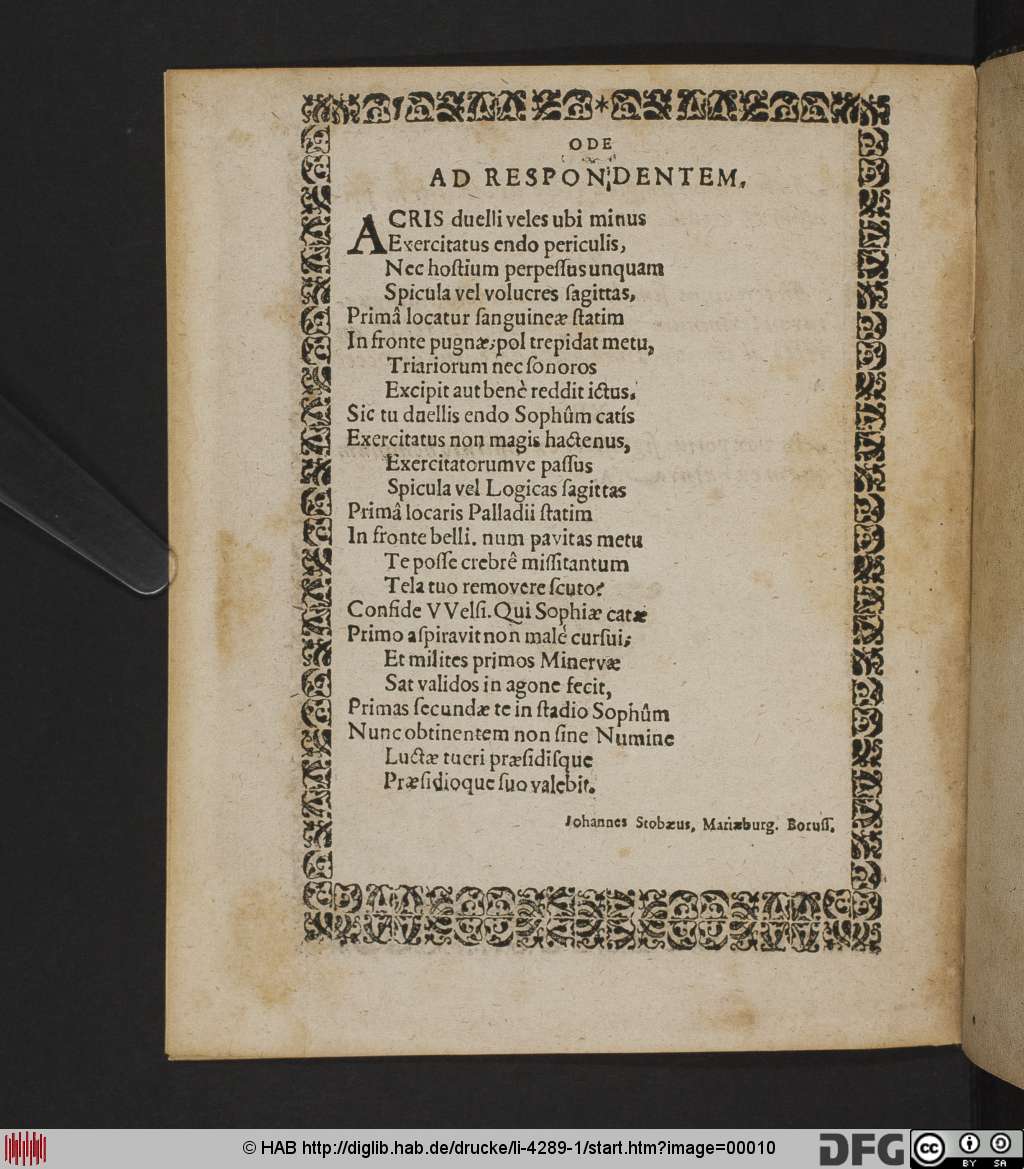 ODE
AD RESPONDENTEM.
ACRIS duelli veles ubi minus
Exercitatus endo periculis,
Nec hostium perpessus unquam
Spicula vel volucres sagittas,
Primâ locatur sanguineæ statim
In fronte pugnæ; pol trepidat metu,
Triariorum nec sonoros
Excipit aut benè reddit ictus.
Sic tu duellis endo Sophûm catís
Exercitatus non magis hactenus,
Exercitatorumve passus
Spicula vel Logicas sagittas
Primâ locaris Palladii statim
In fronte belli. num pavitas metu
Te posse crebrê missitantum
Tela tuo removere scuto?
Confide VVelsi. Qui Sophiæ catæ
Primo aspiravit non malè cursui;
Et milites primos Minervæ
Sat validos in agone fecit,
Primas secundæ te in stadio Sophûm
Nunc obtinentem non sine Numine
Luctæ tueri præsidisque
Præsidioque suo valebit.
Johannes Stobæus, Mariæburg. Boruss.
© HAB http://diglib.hab.de/drucke/li-4289-1/start.htm?image=00010
DFG
cc
BY SA